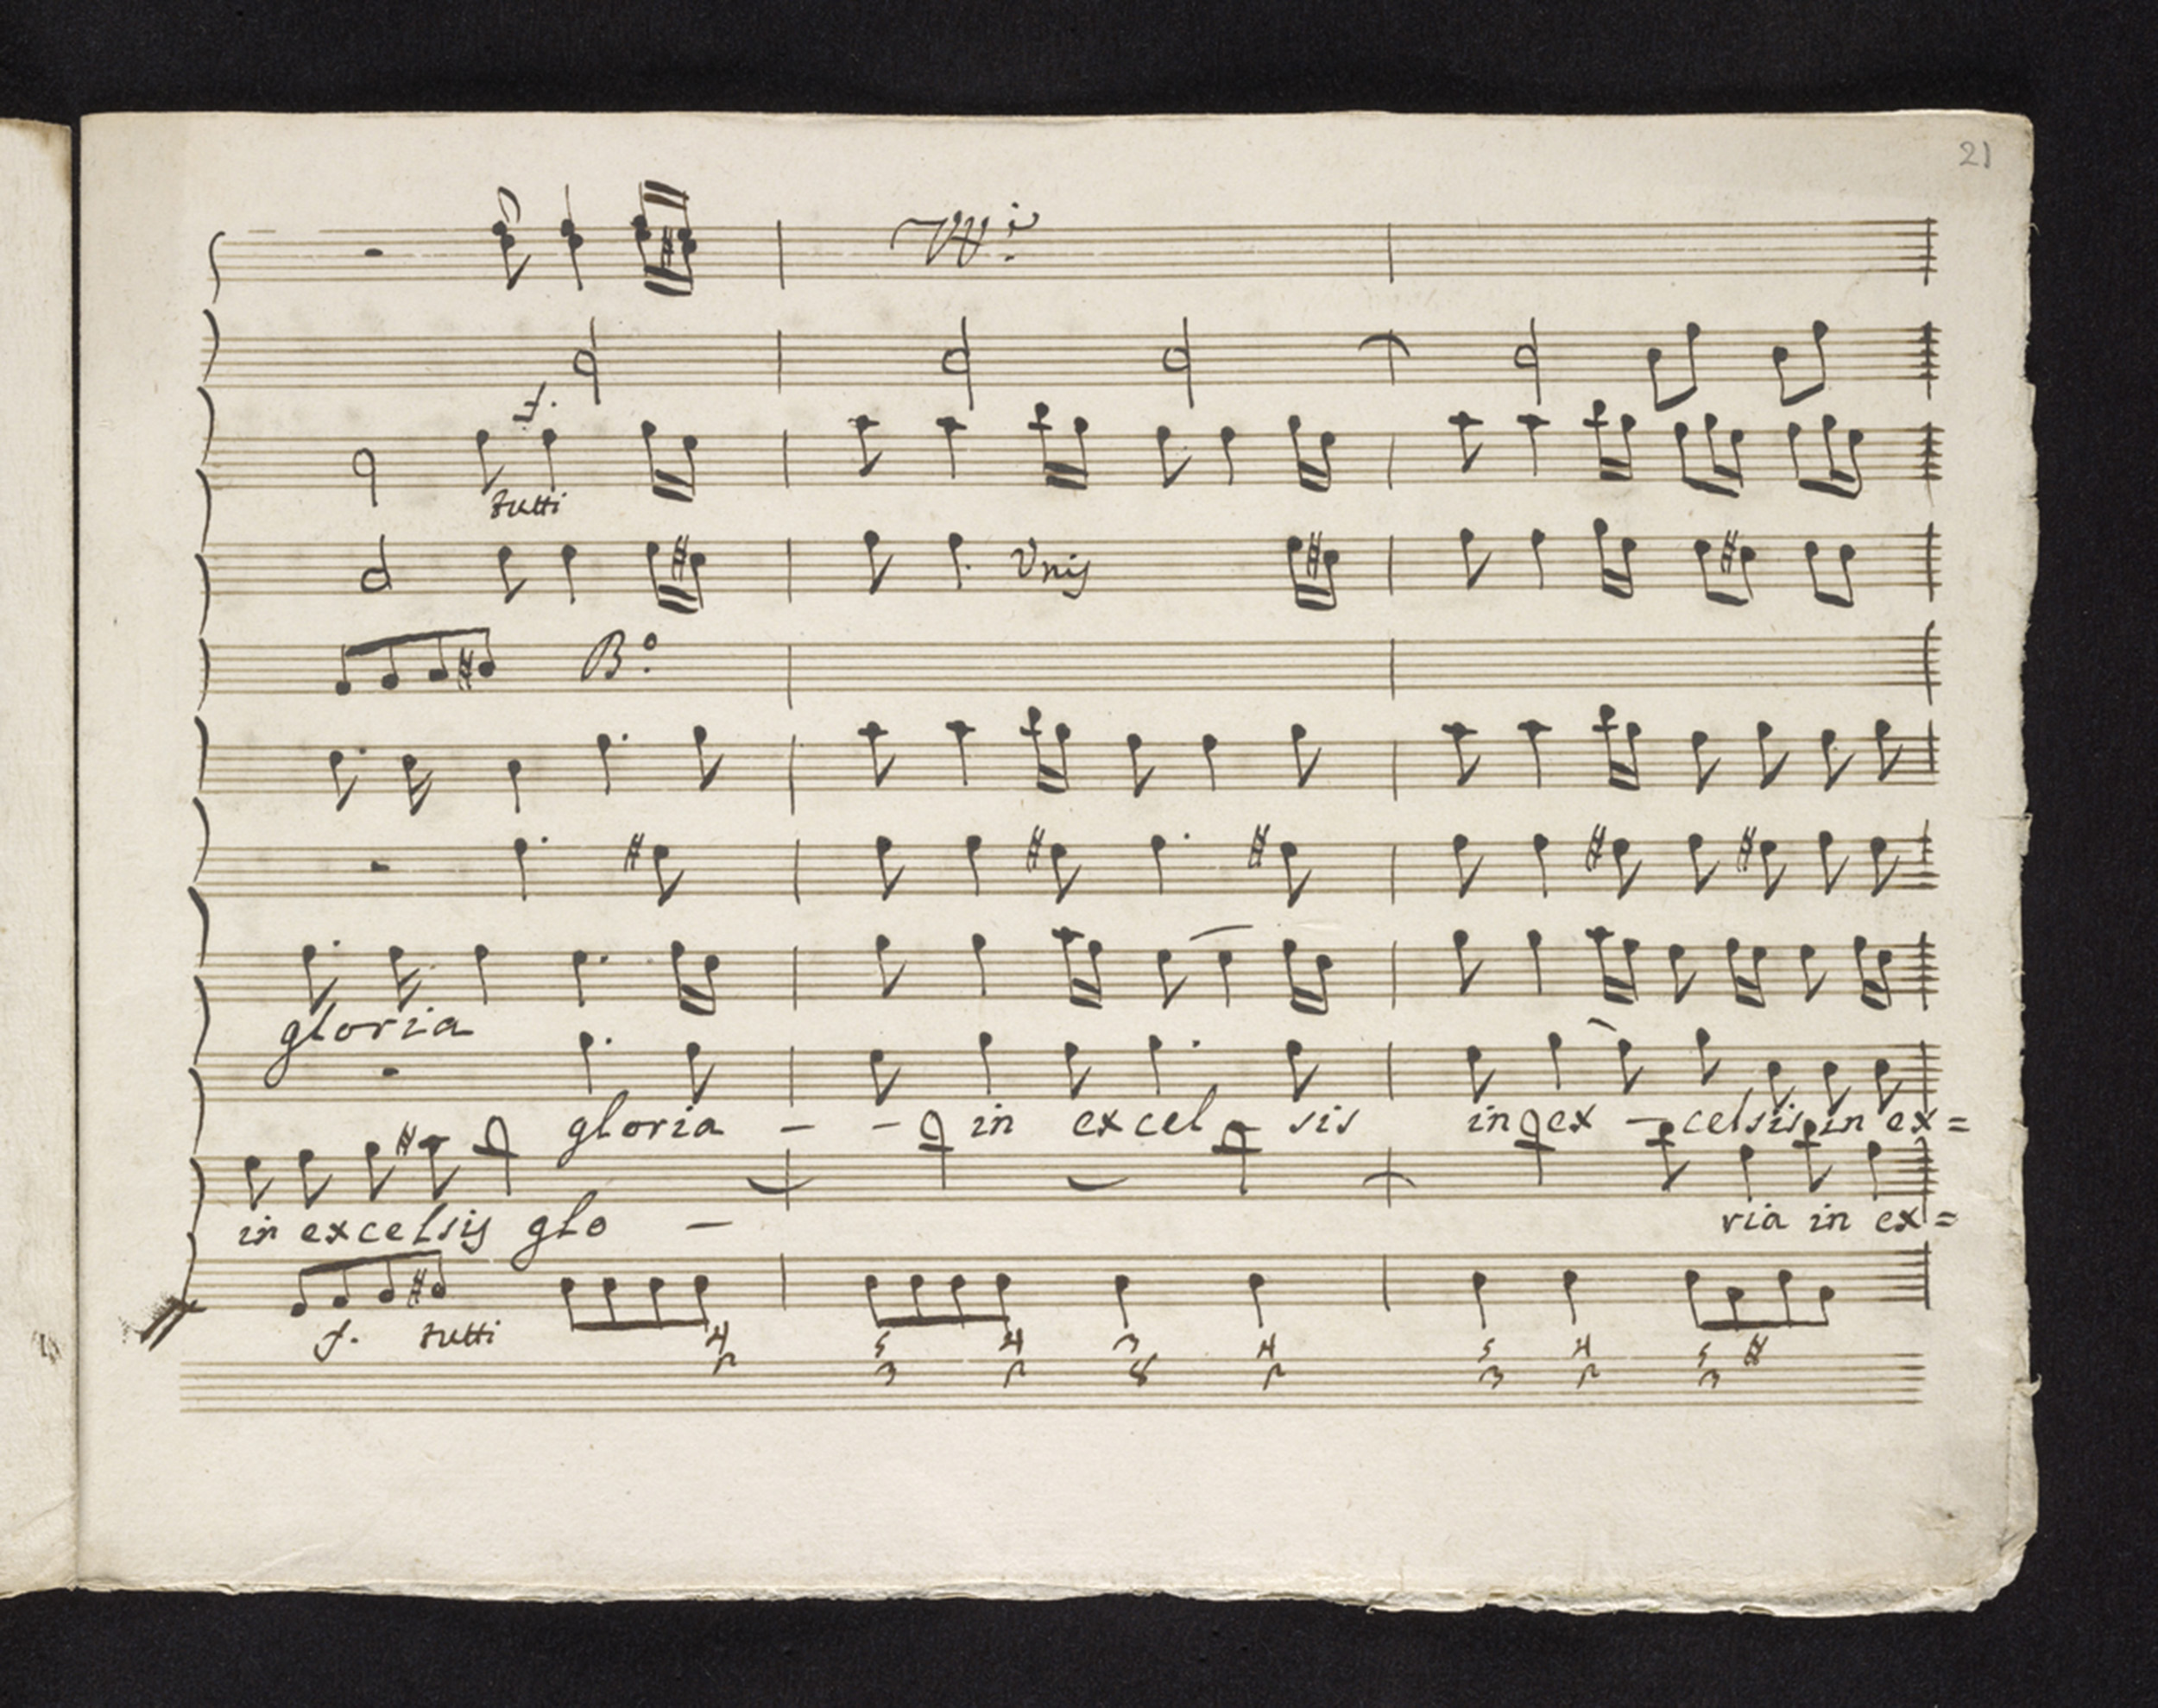 21
VV.i
f.
tutti
Vnis
B.o
gloria
gloria - - in excel - sis in ex - celsis in ex=
in excelsis glo - ria in ex=
f. tutti
4 5 4 3 4 5 4 5 #
2 3 2 8 2 3 2 3